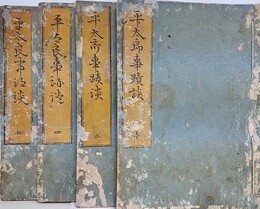 平太郎事蹟談
平太郎事蹟談
平太郎事跡談 四
平太郎事跡談